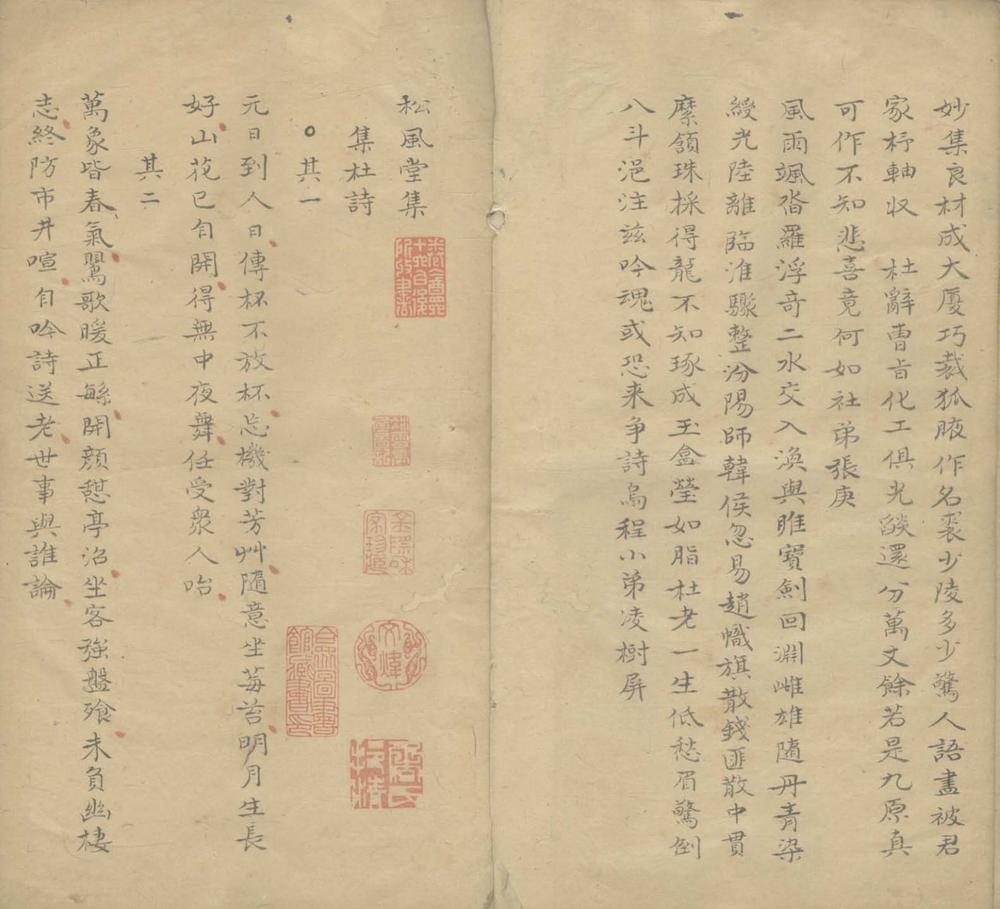 妙集良材成大厦巧裁狐腋作名裘少陵多少驚人語盡被君
家杼軸收　杜辭曹旨化工俱光燄還分萬丈餘若是九原真
可作不知悲喜竟何如社弟張庚
風雨颯沓羅浮奇二水交入渙與睢寶劍回淵雌雄隨丹青染
綬光陸離臨淮驟整汾陽師韓侯忽易趙幟旗散錢匪散中貫
縻領珠採得龍不知琢成玉盒瑩如脂杜老一生低愁眉驚倒
八斗浥注兹吟魂或恐来争詩烏程小弟凌樹屏
松風堂集
集杜詩
其一
元日到人日傳杯不放杯忘機對芳艸隨意坐莓苔明月生長
好山花已自開得無中夜舞任受衆人咍
其二
萬象皆春氣鶯歌暖正緐開顔憩亭沼坐客強盤飱未負幽棲
志終防市井喧自吟詩送老世事與誰論